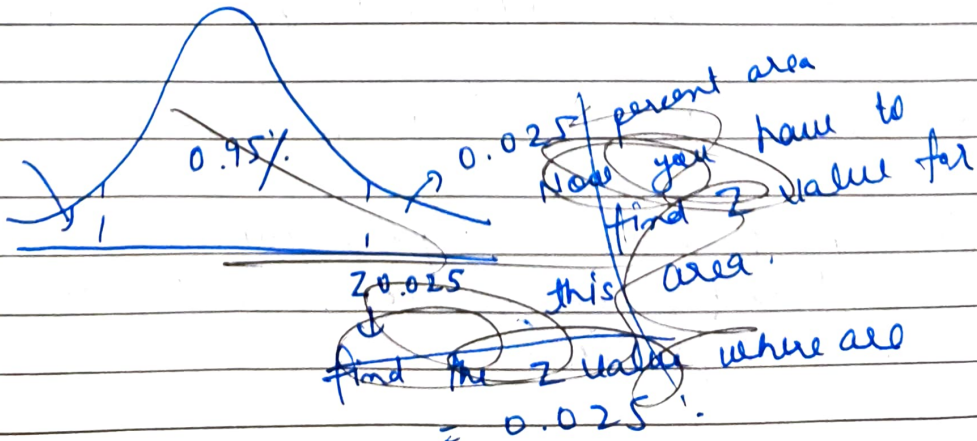 0.95%.
0.025 percent area
Now you have to
find Z value for
this area.
Z0.025
find the z value where are
= 0.025.